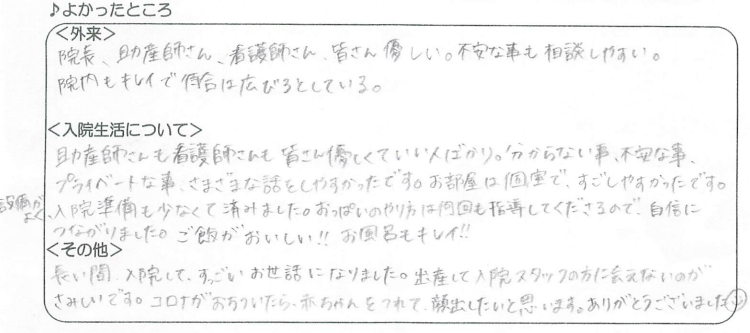 ♪よかったところ
<外来>
院長、助産師さん、看護師さん、皆さん優しい。不安な事も相談しやすい。
院内もキレイで待合は広びろとしている。
<入院生活について>
助産師さんも看護師さんも皆さん優しくていい人ばかり。分からない事、不安な事、
プライベートな事、さまざまな話をしやすかったです。お部屋は個室で、すごしやすかったです。
設備がよく、入院準備も少なくて済みました。おっぱいのやり方は何回も指導してくださるので、自信に
つながりました。ご飯がおいしい!! お風呂もキレイ!!
<その他>
長い間、入院して、すっごいお世話になりました。出産して入院スタッフの方に会えないのが
さみしいです。コロナがおちついたら、赤ちゃんをつれて、顔出ししたいと思います。ありがとうございました